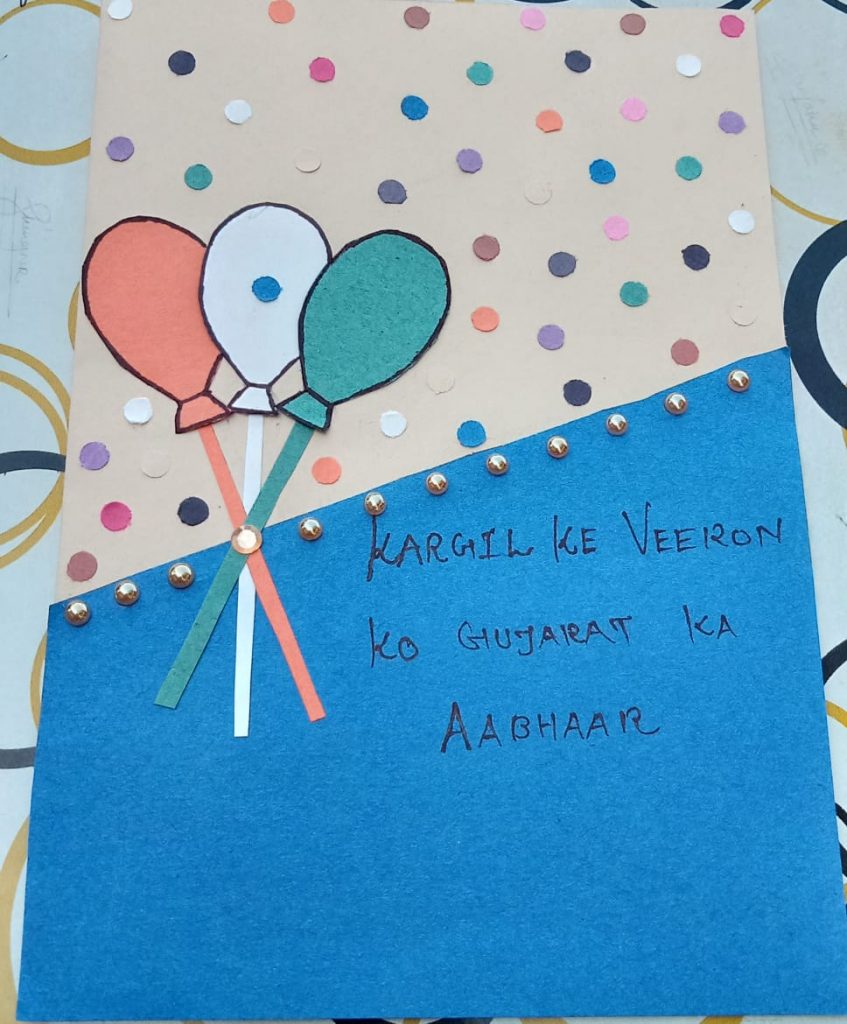 KARGIL KE VEERON
KO GUJARAT KA
AABHAAR